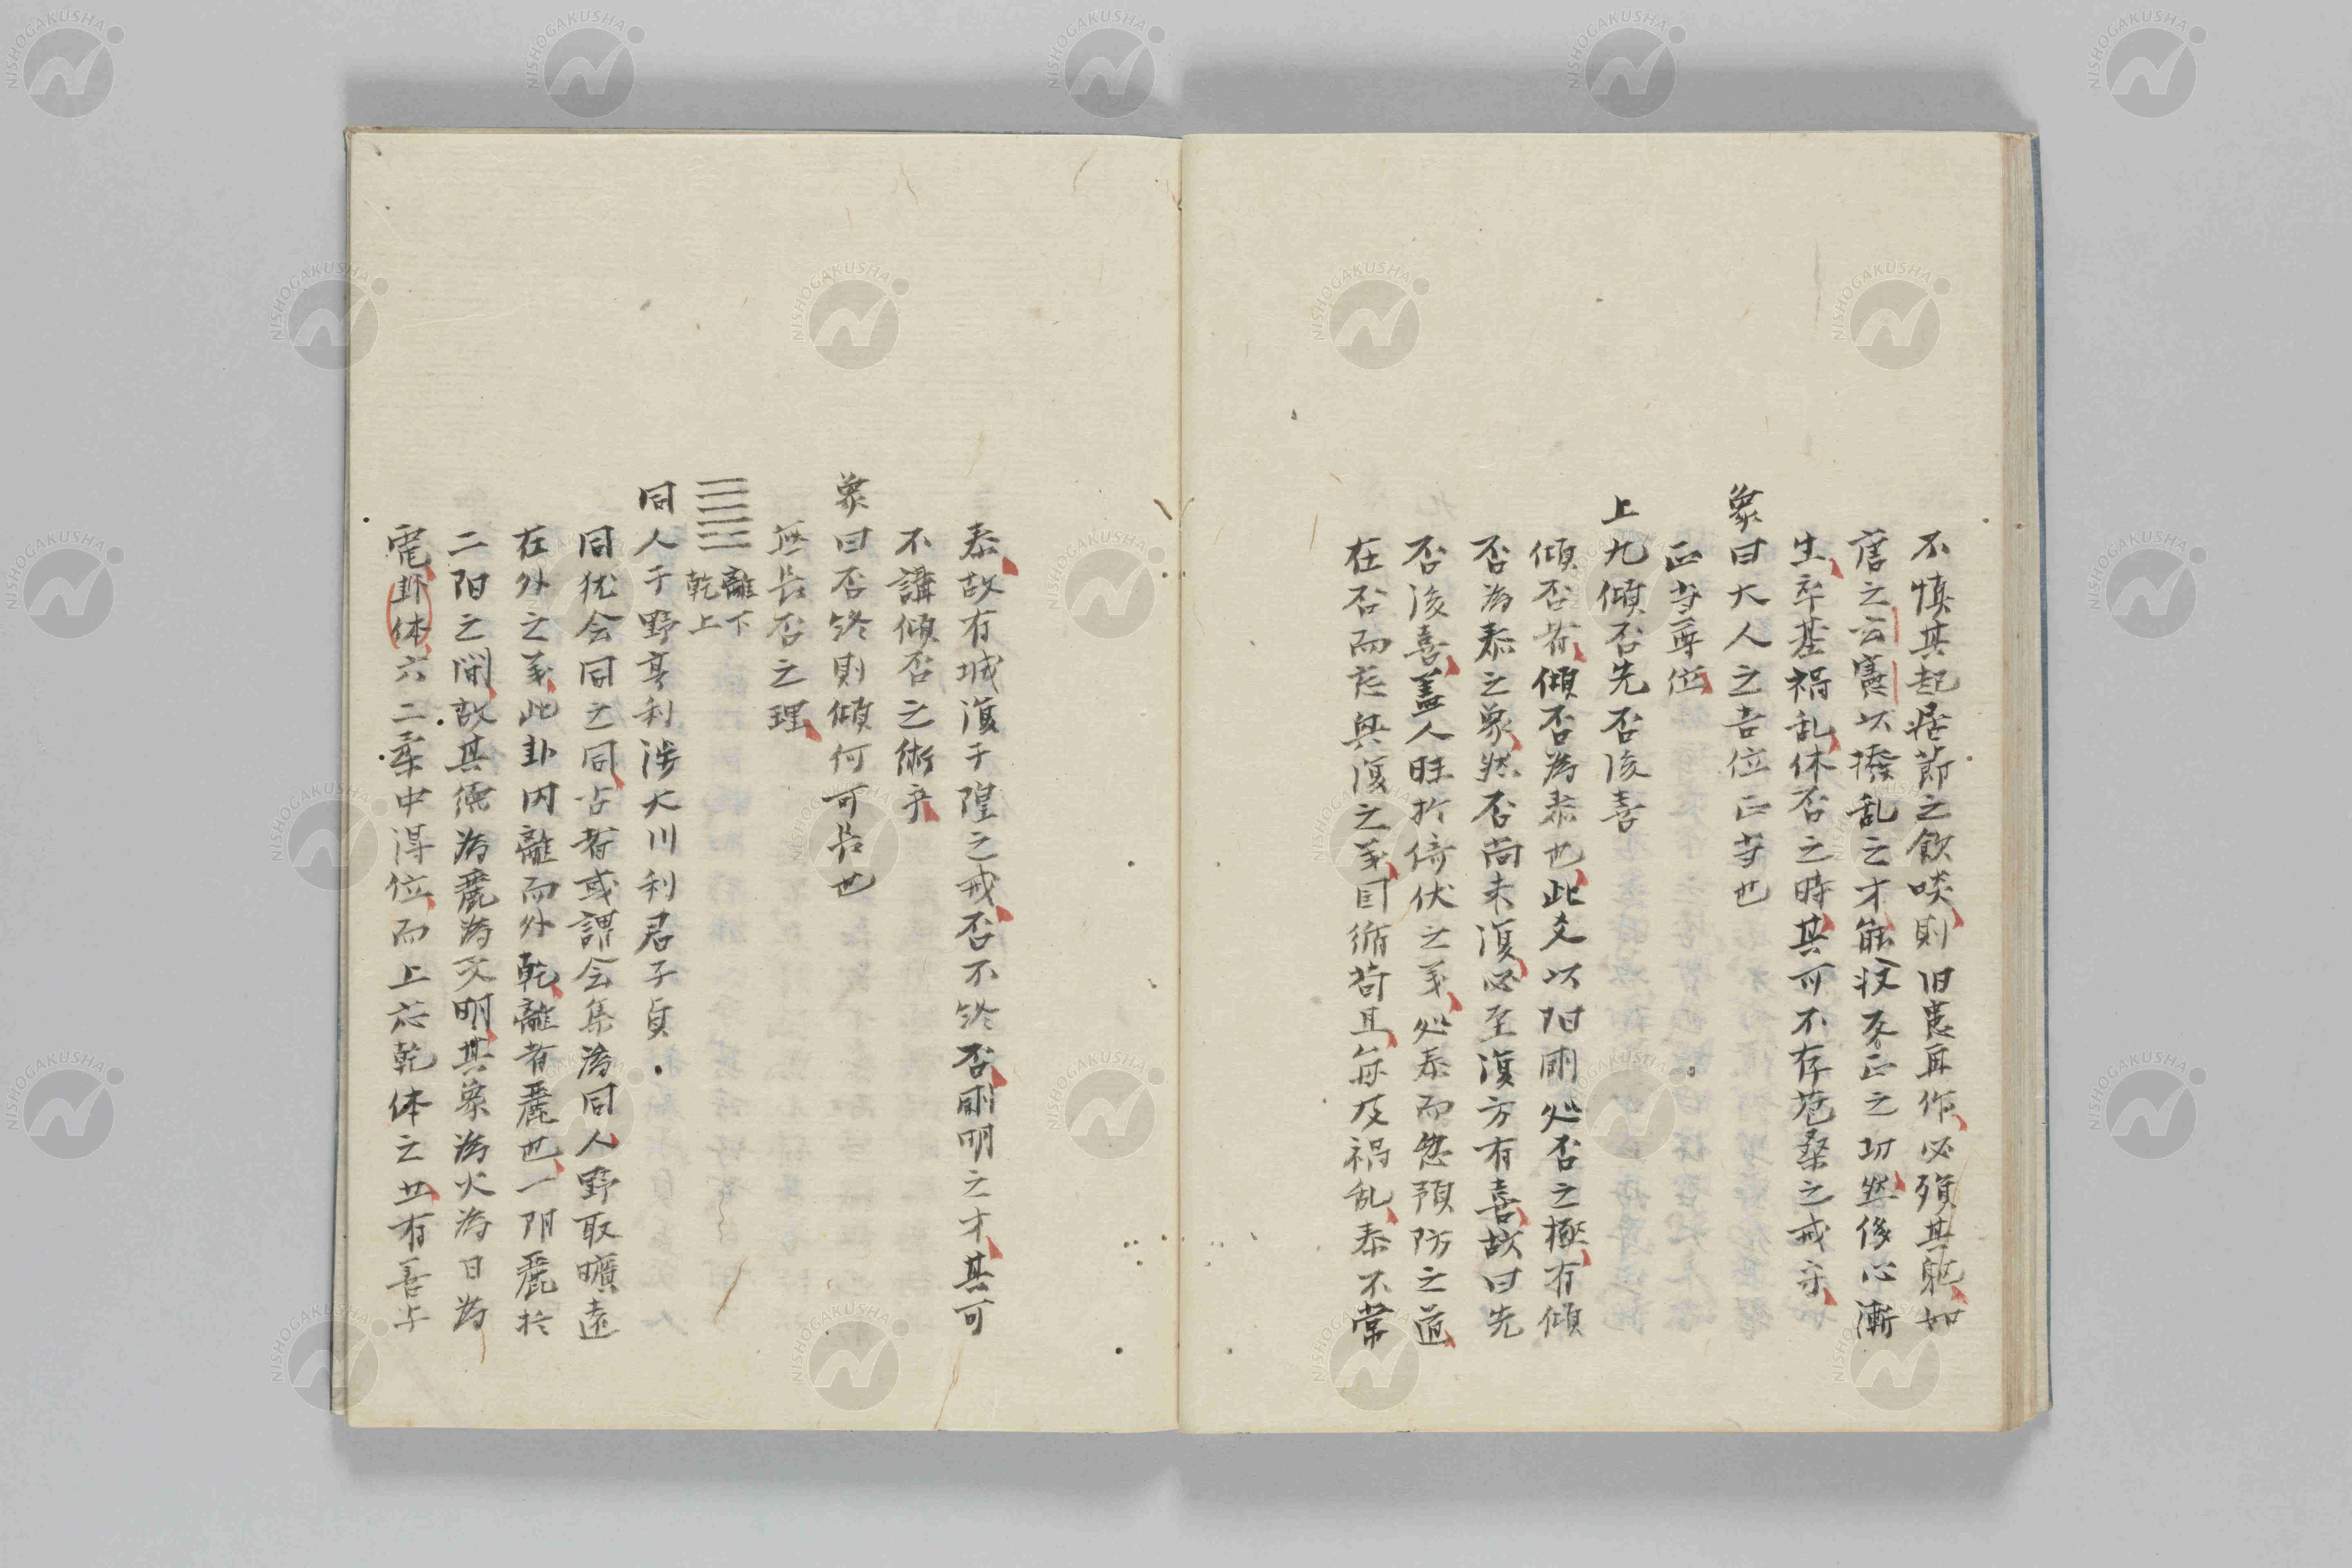 不慎其起居節之飲啖則旧患再作必殞其躯如
唐之玄憲以撥乱之才能收不正之功然侈心漸
生卒基禍乱休否之時其可不存苞桑之戒乎
象曰大人之吉位正当也
正当尊位
上九傾否先否後喜
傾否者傾否為泰也此爻以陽剛処否之極有傾
否為泰之象然否尚未復必至復方有喜故曰先
否後喜蓋人昧於倚伏之義処泰而忽預防之道
在否而忘興復之義因循苟且毎及禍乱泰不常
泰故有城復于隍之戒否不終否剛明之才其可
不講傾否之術乎
象曰否終則傾何可長也
無長否之理
離下
乾上
同人于野亨利渉大川利君子貞
同犹会同之同占者或謂会集為同人野取曠遠
在外之義此卦内離而外乾離者麗也一阴麗於
二阳之間故其徳為麗為文明其象為火為日為
電卦体六二柔中得位而上応乾体之五有善与
NISHOGAKUSHA